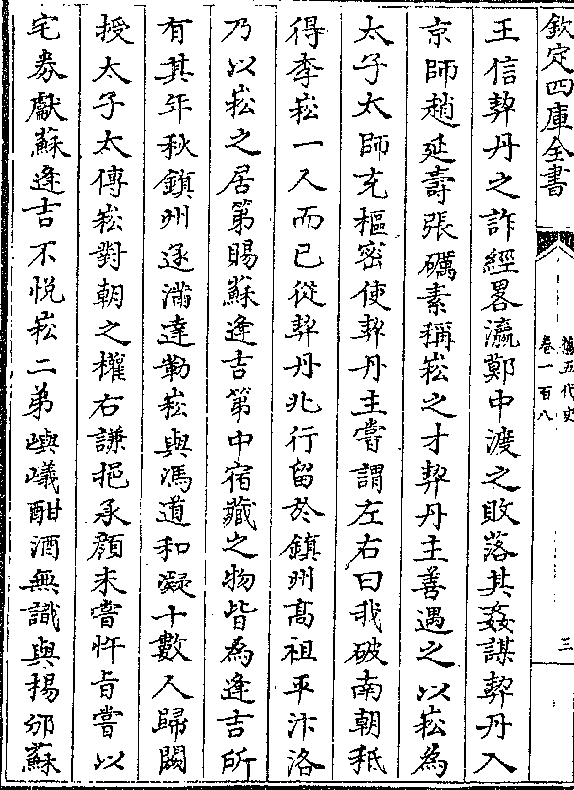 欽定四庫全書
舊五代史
卷一百八
三
王信契丹之詐經畧瀛鄭中渡之敗落其姦謀契丹入
京師趙延壽張礪素稱崧之才契丹主善遇之以崧為
太子太師充樞密使契丹主嘗謂左右曰我破南朝秪
得李崧一人而已從契丹北行留於鎮州髙祖平汴洛
乃以崧之居第賜蘇逢吉第中宿藏之物皆為逢吉所
有其年秋鎮州逐滿達勒崧與馮道和凝十數人歸闕
授太子太傅崧對朝之權右謙挹承顔未嘗忤㫖嘗以
宅劵獻蘇逢吉不悦崧二弟嶼㠖酣酒無識與楊邠蘇